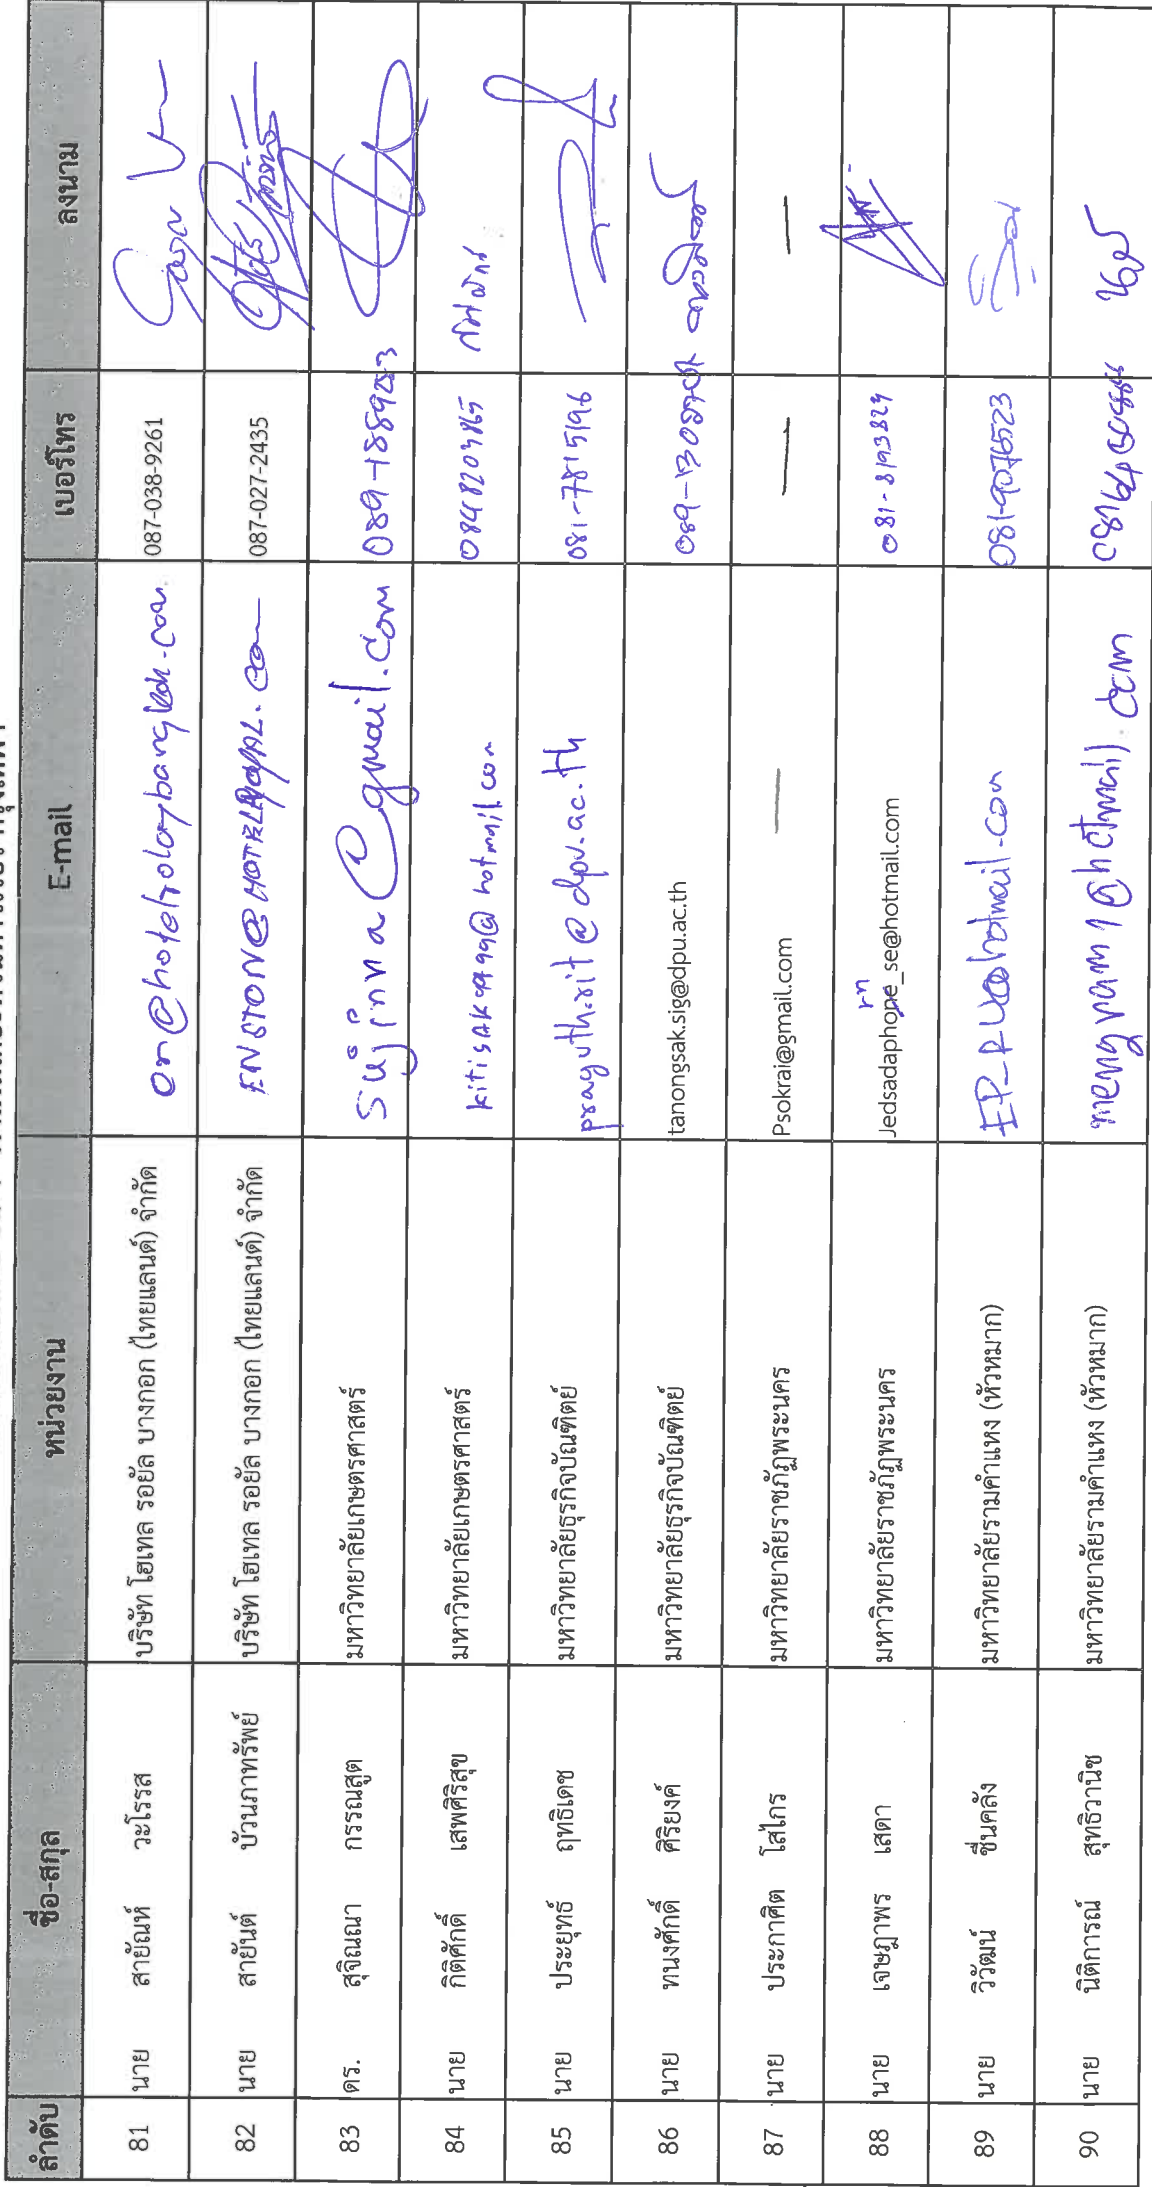 ลำดับ ชื่อ-สกุล หน่วยงาน E-mail เบอร์โทร ลงนาม
81 นาย สายัณห์ วะโรรส บริษัท โฮเทล รอยัล บางกอก (ไทยแลนด์) จำกัด 087-038-9261
82 นาย สายันต์ บ้วนภาทรัพย์ บริษัท โฮเทล รอยัล บางกอก (ไทยแลนด์) จำกัด 087-027-2435
83 ดร. สุจิณณา กรรณสูต มหาวิทยาลัยเกษตรศาสตร์ sujinna@gmail.com
84 นาย กิติศักดิ์ เสพศิริสุข มหาวิทยาลัยเกษตรศาสตร์ kitisAK9999@hotmail.com
85 นาย ประยุทธ์ ฤทธิเดช มหาวิทยาลัยธุรกิจบัณฑิตย์ prayuth.rit@dpu.ac.th 081-7815196
86 นาย ทนงศักดิ์ ศิริยงค์ มหาวิทยาลัยธุรกิจบัณฑิตย์ tanongsak.sig@dpu.ac.th
87 นาย ประกาศิต โสไกร มหาวิทยาลัยราชภัฏพระนคร Psokrai@gmail.com — — —
88 นาย เจษฎาพร เสดา มหาวิทยาลัยราชภัฏพระนคร Jedsadaphone_se@hotmail.com 081-8193829
89 นาย วิวัฒน์ ชื่นคลัง มหาวิทยาลัยรามคำแหง (หัวหมาก) 081-9076523
90 นาย นิติการณ์ สุทธิวานิช มหาวิทยาลัยรามคำแหง (หัวหมาก) mengram1@hotmail.com